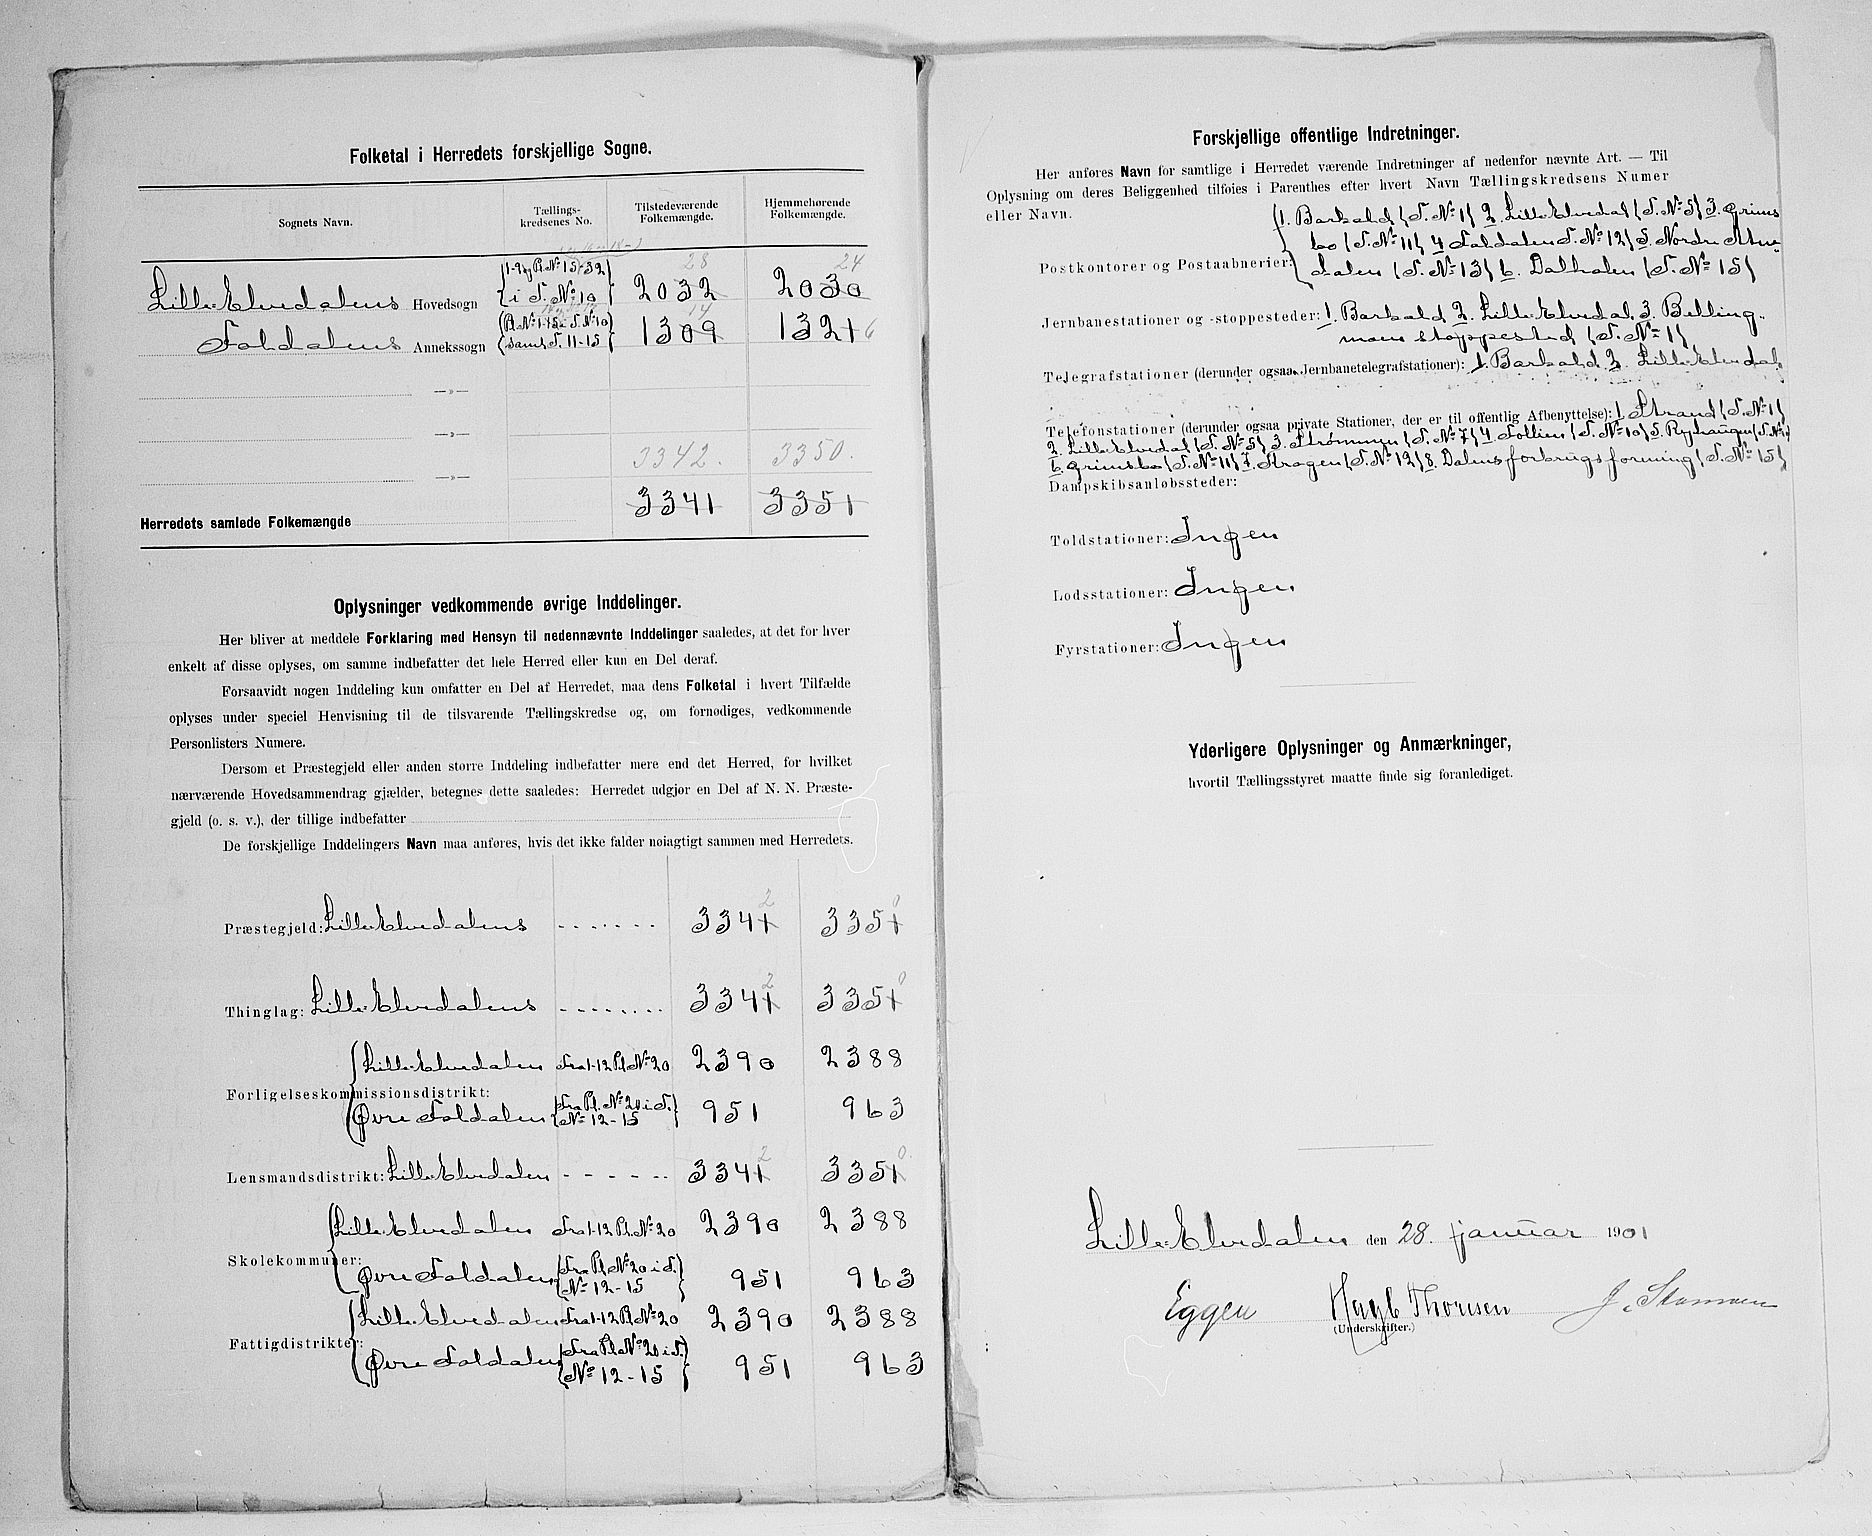 Folketal i Herredets forskjellige Sogne.
Sognets Navn.
Tællings-
kredsenes No.
Tilstedeværende
Folkemængde.
Hjemmehørende
Folkemængde.
28 24
1-9 og Pl. No 15-32
Lille Elvedalens Hovedsogn i T. No 10 2032 2030
14
Pl. No 1-15 i T. No 10
Foldalens Annekssogn samt T. 11-15 1309 1321 6
—»—
—»—
3342. 3350.
—»—
Herredets samlede Folkemængde 3341 3351
Oplysninger vedkommende øvrige Inddelinger.
Her bliver at meddele Forklaring med Hensyn til nedennævnte Inddelinger saaledes, at det for hver
enkelt af disse oplyses, om samme indbefatter det hele Herred eller kun en Del deraf.
Forsaavidt nogen Inddeling kun omfatter en Del af Herredet, maa dens Folketal i hvert Tilfælde
oplyses under speciel Henvisning til de tilsvarende Tællingskredse og, om fornødiges, vedkommende
Personlisters Numere.
Dersom et Præstegjeld eller anden større Inddeling indbefatter mere end det Herred, for hvilket
nærværende Hovedsammendrag gjælder, betegnes dette saaledes: Herredet udgjør en Del af N. N. Præste-
gjeld (o. s. v.), der tillige indbefatter
De forskjellige Inddelingers Navn maa anføres, hvis det ikke falder nøiagtigt sammen med Herredets.
2 0
Præstegjeld: Lille Elvedalens 3341 3351
2 0
Thinglag: Lille Elvedalens 3341 3351
Lille Elvedalen Fra 1-12 Pl. No 20 2390 2388
Forligelseskommissionsdistrikt:
Øvre Foldalen Fra Pl. No 20 i T. No 12-15 951 963
2 0
Lensmandsdistrikt: Lille Elvedalen 3341 3351
Lille Elvedalen Fra 1-12 Pl. No 20 2390 2388
Skolekommuner:
Øvre Foldalen Fra Pl. No 20 i T. No 12-15 951 963
Lille Elvedalen Fra 1-12 Pl. No 20 2390 2388
Fattigdistrikter:
Øvre Foldalen Fra Pl. No 20 i T. No 12-15 951 963
Forskjellige offentlige Indretninger.
Her anføres Navn for samtlige i Herredet værende Indretninger af nedenfor nævnte Art. — Til
Oplysning om deres Beliggenhed tilføies i Parenthes efter hvert Navn Tællingskredsens Numer
eller Navn.
1. Barkald (T. No 1) 2. Lille Elvedal (T. No 5) 3. Grims
bo (T. No 11) 4 Foldalen T. No 12) 5. Nordre Atne
Postkontorer og Postaabnerier: dalen (T. No 13) 6. Dalholen (T. No 15)
Jernbanestationer og -stoppesteder: 1. Barkald 2. Lille Elvedal. 3. Belling-
moen stoppested (T. No 1)
Telegrafstationer (derunder ogsaa Jernbanetelegrafstationer): 1. Barkald 2. Lille Elvedal.
Telefonstationer (derunder ogsaa private Stationer, der er til offentlig Afbenyttelse): 1 Strand (T. No 1)
2. Lille Elvedal (T. No 5) 3. Strømmen (T. No 7) 4 Follien (T. No 10) 5. Ryhaugen (T. No
6. Grimsbo (T. No 11) 7. Krogen (T. No 12) 8. Dalens forbrugsforening (T. No 15)
Dampskibsanløbssteder:
Toldstationer: Ingen
Lodsstationer: Ingen
Fyrstationer: Ingen
Yderligere Oplysninger og Anmærkninger,
hvortil Tællingsstyret maatte finde sig foranlediget.
Lille Elvedalen den 28. januar 1901
Eggen Hagb Thoresen
(Underskrifter.)